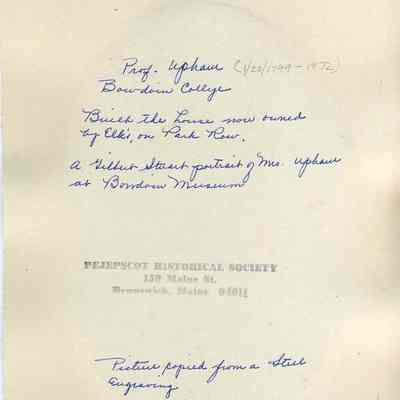 Prof. Upham (1/30/1799 - 1872)
Bowdoin College
Built the house now owned
by Elk's, on Park Row.
A Gilbert Stuart portrait of Mrs. Upham
at Bowdoin Museum
PEJEPSCOT HISTORICAL SOCIETY
159 Maine St.
Brunswick, Maine 04011
Picture copied from a Steel
Engraving